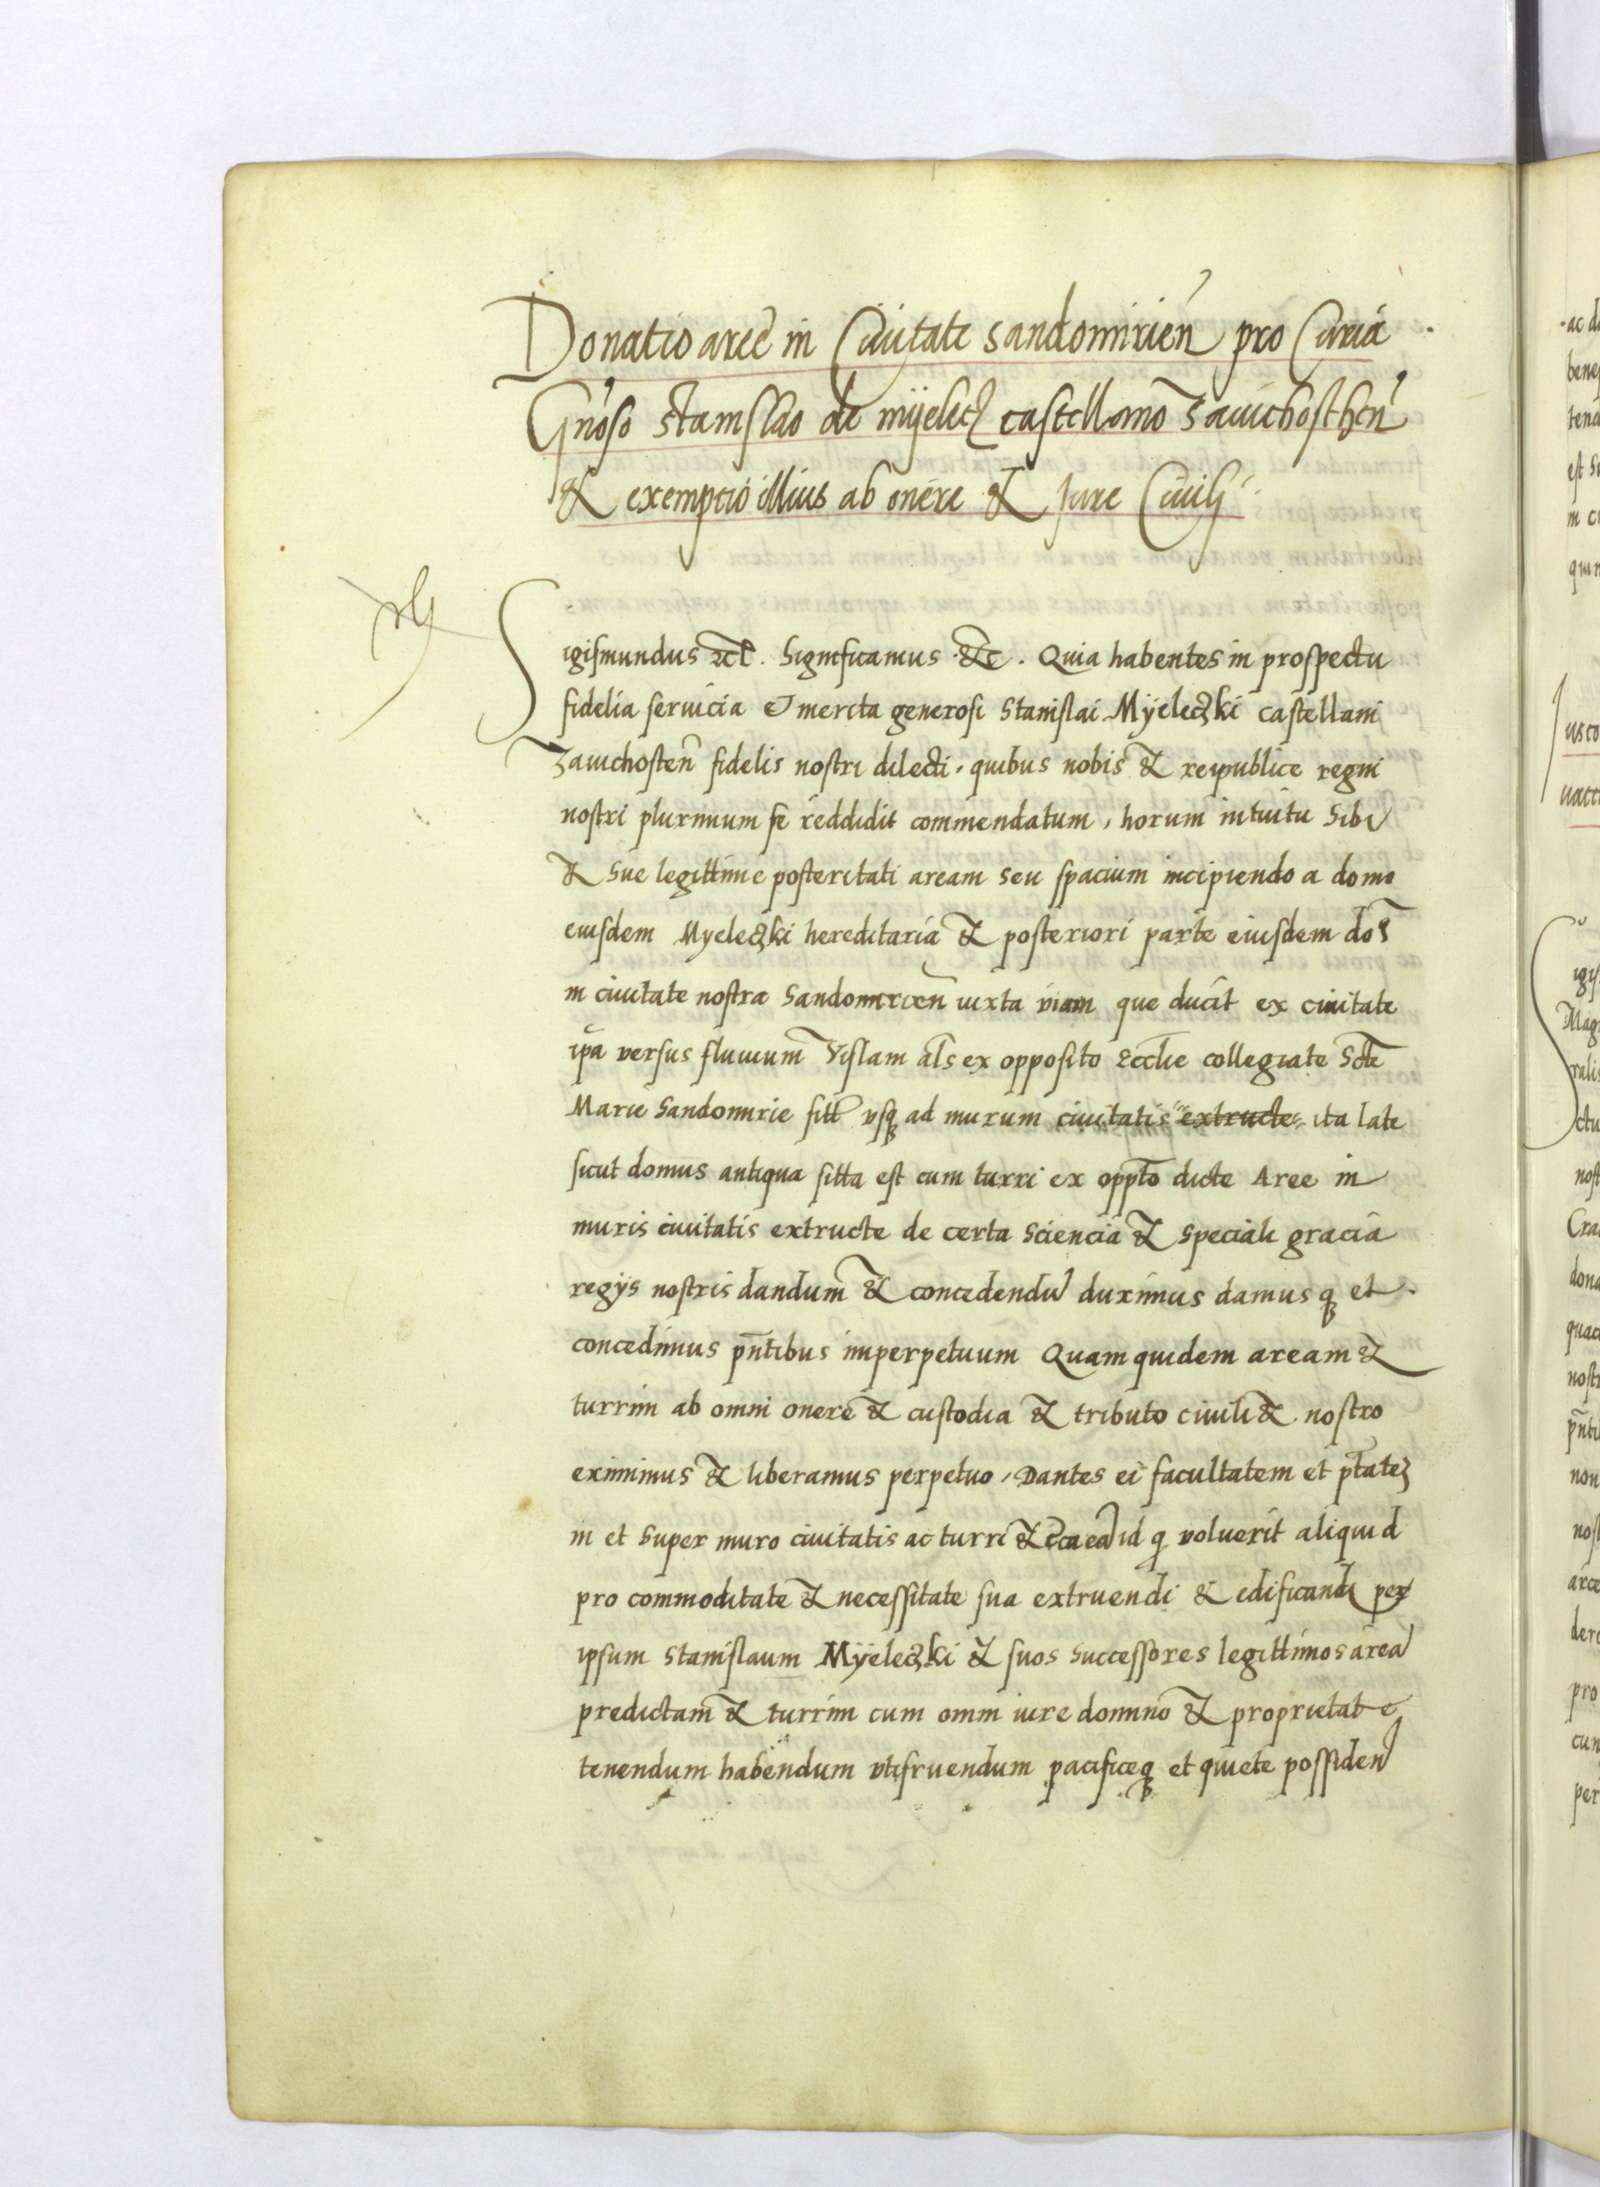 Donatio aree in Civitate Sandomirien pro Curia
Gnoso Stanislao de Myelecz castellano Zavichosthen
& exemptio illius ab onere & Jure Civili
Sigismundus etc. Significamus etc. Quia habentes in prospectu
fidelia servicia & merita generosi Stanislai Mÿeleczki castellani
Zavichosten fidelis nostri dilecti, quibus nobis & reipublice regni
nostri plurimum se reddidit commendatum, horum intuitu Sibi
& Sue legittime posteritati aream seu spacium incipiendo a domo
eiusdem Myeleczki hereditaria & posteriori parte eiusdem do
in civitate nostra Sandomirien iuxta viam que ducit ex civitate
ipa versus fluvium Vislam als ex opposito Ecclie collegiate Scte
Marie Sandomirie sitt usq ad murum civitatis extructe ita late
sicut domus antiqua sitta est cum turri ex oppto dicte Aree in
muris civitatis extructe de certa Sciencia & Speciali gracia
regijs nostris dandum & concedendu duximus damus q et
concedimus pntibus imperpetuum Quam quidem aream &
turrim ab omni onere & custodia & tributo civili & nostro
eximimus & liberamus perpetuo, Dantes ei facultatem et ptatez
in et Super muro civitatis ac turri & id q voluerit aliquid
pro commoditate & necessitate sua extruendi & edificandi per
ipsum Stanislaum Mÿeleczki & suos Successores legittimos area
predictam & turrim cum omni iure dominio & proprietate
tenendum habendum utifruendum pacificeq et quiete possiden
·ac
bene
tena
est
in
nost
pro
per